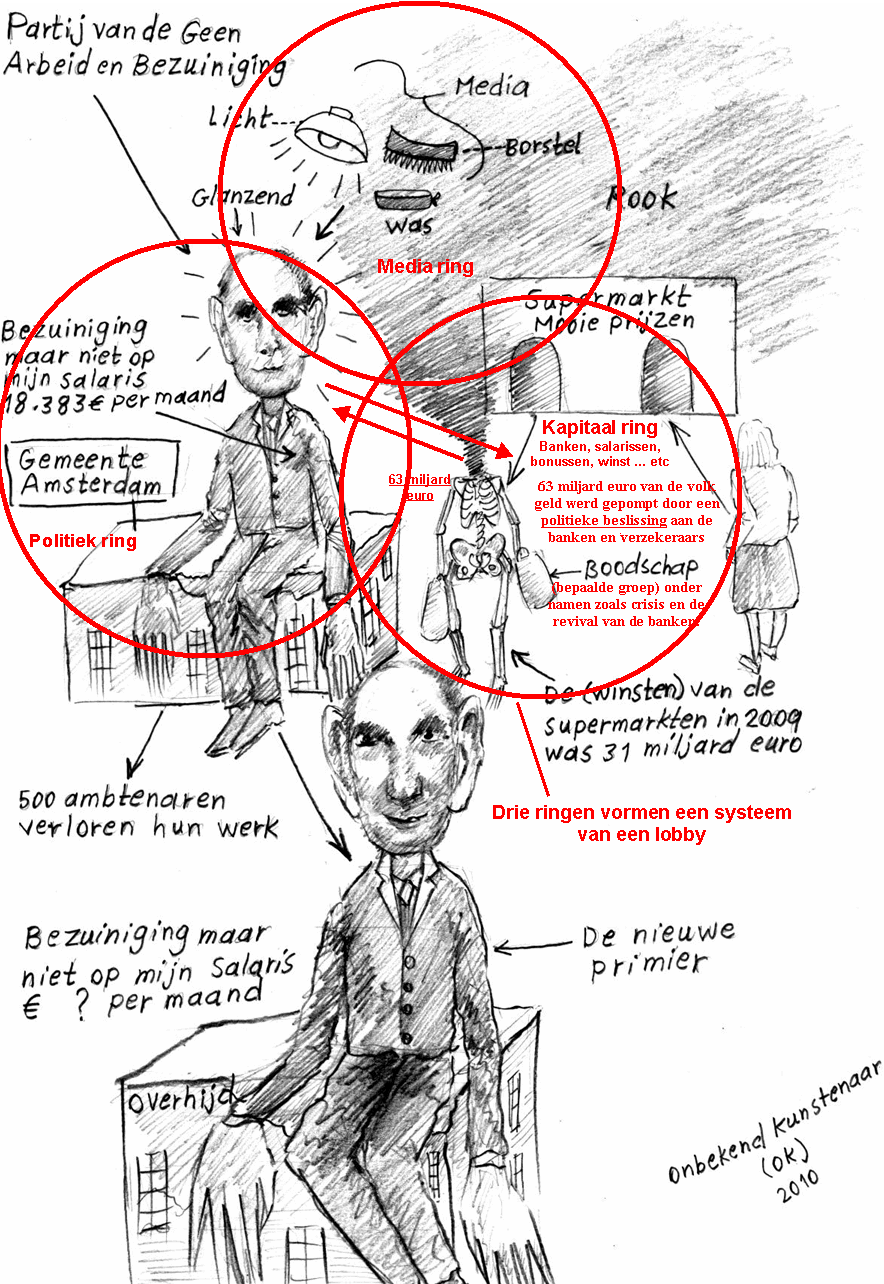 Partij van de Geen
Arbeid en Bezuiniging
Media
Licht
Borstel
Glanzend
was
Rook
Media ring
Supermarkt
Mooie prijzen
Bezuiniging
maar niet op
mijn salaris
18.383€ per maand
Gemeente
Amsterdam
Politiek ring
63 miljard
euro
Kapitaal ring
Banken, salarissen,
bonussen, winst ... etc
63 miljard euro van de volk
geld werd gepompt door een
politieke beslissing aan de
banken en verzekeraars
Boodschap
(bepaalde groep) onder
namen zoals crisis en de
revival van de banken.
De (winsten) van de
supermarkten in 2009
was 31 miljard euro
500 ambtenaren
verloren hun werk
Drie ringen vormen een systeem
van een lobby
Bezuiniging maar
niet op mijn salaris
€ ? per maand
De nieuwe
primier
overhijd
onbekend kunstenaar
(OK)
2010